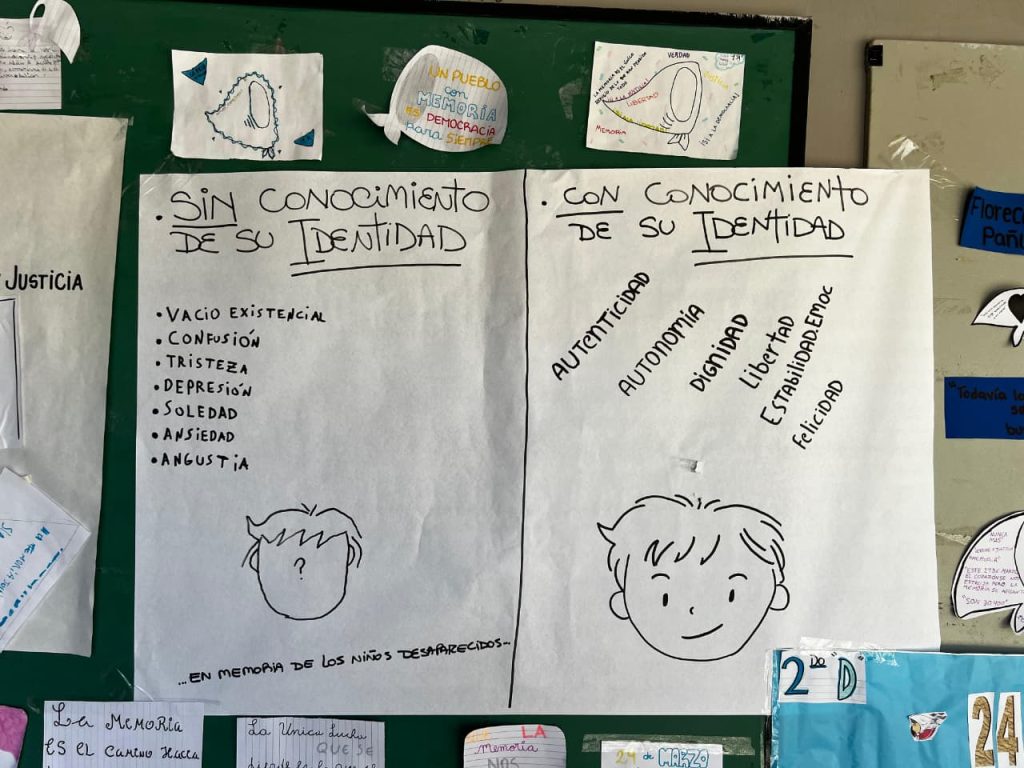 UN PUEBLO
con
MEMORÍA
ES DEMOCRACIA
para SIEMPRE
VERDAD
LIBERTAD
MEMORIA
¡SI A LA DEMOCRACIA!
JUSTICIA
. SIN CONOCIMIENTO
DE SU IDENTIDAD
• VACIO EXISTENCIAL
• CONFUSIÓN
• TRISTEZA
• DEPRESIÓN
• SOLEDAD
• ANSIEDAD
• ANGUSTIA
?
...EN MEMORIA DE LOS NIÑOS DESAPARECIDOS...
. CON CONOCIMIENTO
DE SU IDENTIDAD
AUTENTICIDAD
AUTONOMIA
DIGNIDAD
Libertad
Estabilidad.Emoc
Felicidad
Florec
Pañu
"Todavía
NUNCA
MAS"
"SON 30.400"
2DO "D"
24
La Memoria
es el camino hacia
La Unica Lucha
QUE SE
LA
Memoria
NOS
24 de MARZO